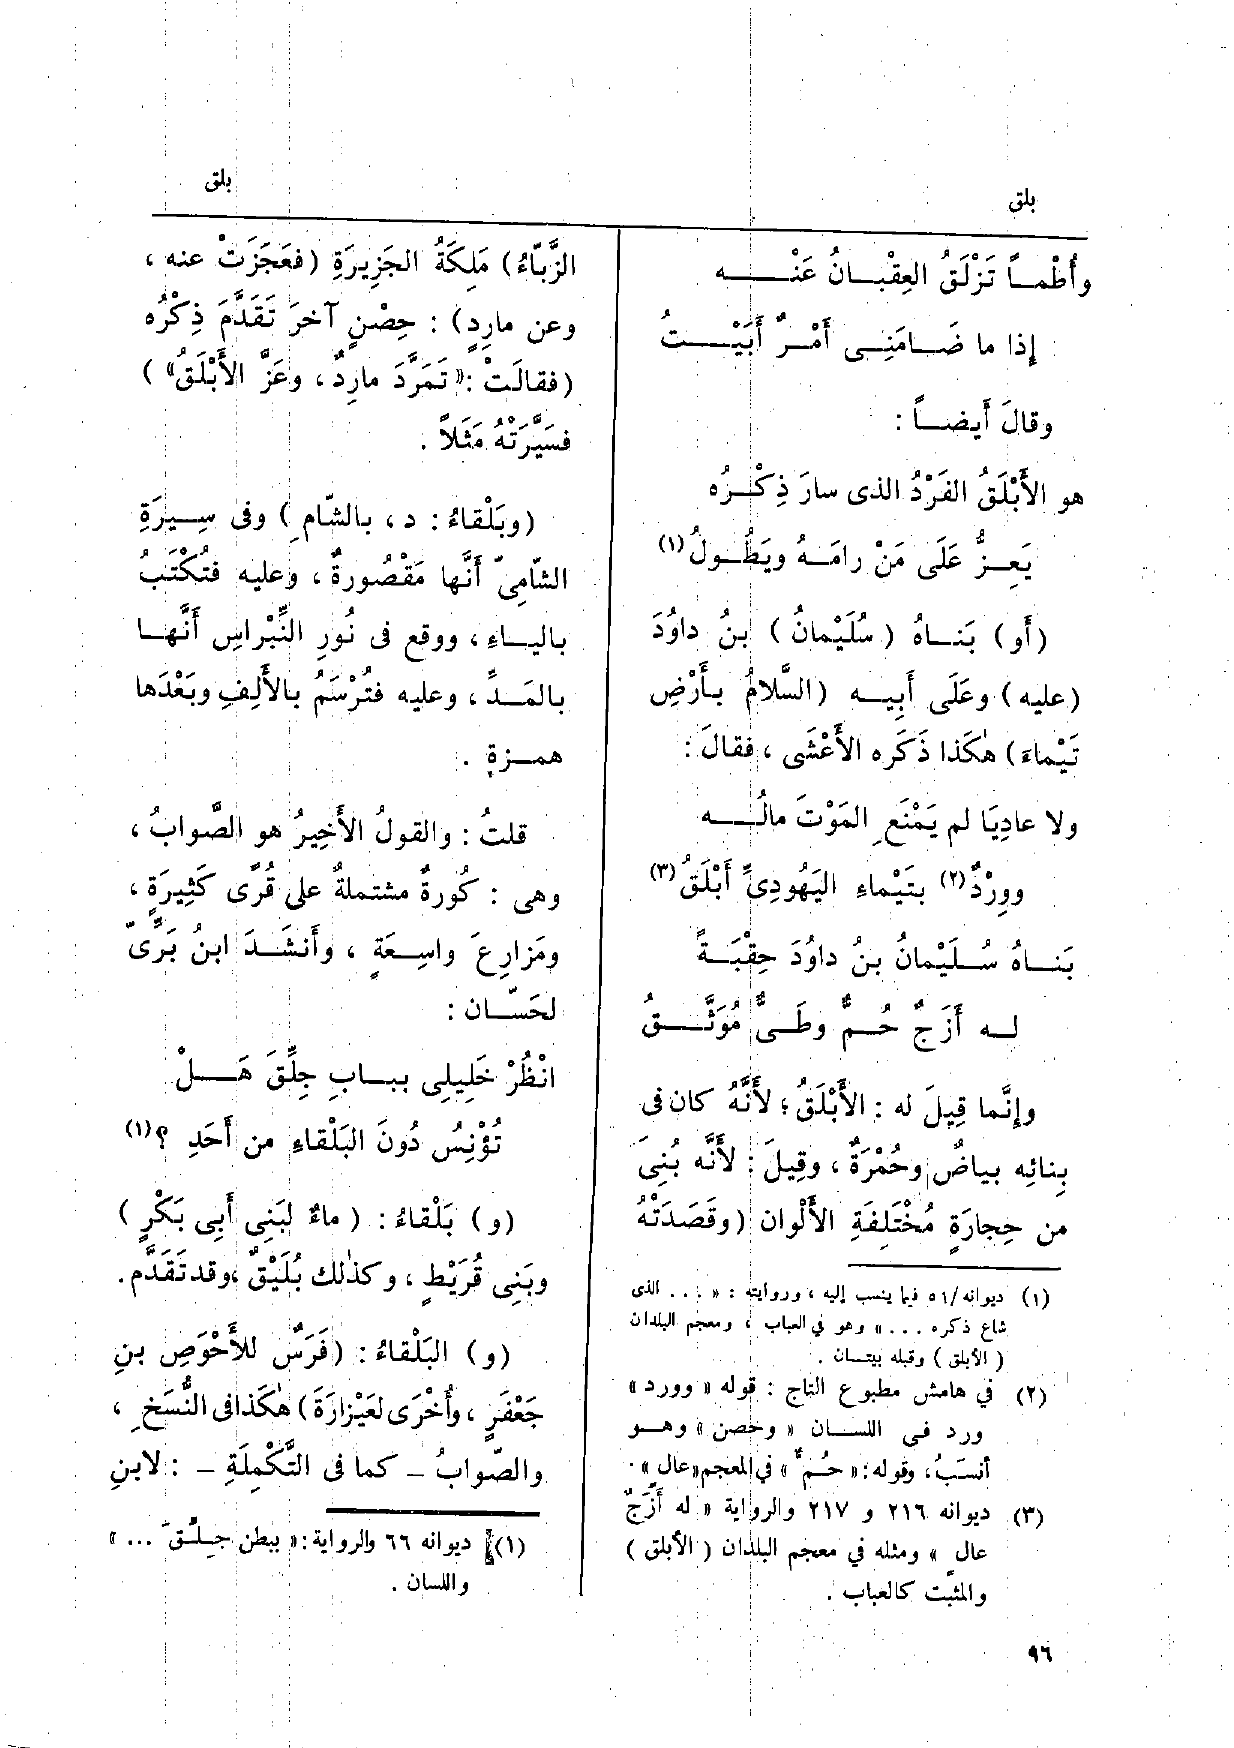 بلق
بلق
وأُطْمـاً تَزْلَقُ العِقْبـانُ عَنْـــه
إذا ما ضَـامَنِـى أَمْـرٌ أَبَيْـــتُ
وقالَ أيضـاً :
هو الأَبْلَقُ الفَرْدُ الذى سارَ ذِكْـرُه
يَعِـزُّ عَلَى مَنْ رامَـهُ ويَطُـولُ (١)
(أو) بَنـاهُ ( سُلَيْمانُ ) بنُ داوُدَ
(عليه) وعَلَى أَبِيـه (السَّلامُ بـأَرْضِ
تَيْماءَ) هٰكَذا ذَكَره الأَعْشى ، فقالَ :
ولا عادِيَا لم يَمْنَعِ المَوْتَ مالُـــه
ووِرْدٌ (٢) بتَيْماءِ اليَهُودِىِّ أَبْلَقُ (٣)
بَنـاهُ سُـلَيْمانُ بنُ داوُدَ حِقْبَـةً
لـه أَزَجٌ حُـمٌّ وطَـىٌّ مُوَثَّـــقُ
وإِنَّما قِيلَ له : الأَبْلَقُ ؛ لأَنَّهُ كان فى
بِنائِه بياضٌ وحُمْرَةٌ ، وقِيلَ : لأَنَّه بُنِىَ
من حِجارَةٍ مُخْتَلِفَةِ الأَلْوان (وقَصَدَتْهُ
(١) ديوانه/٥١ فيما ينسب إليه ، وروايته : « ... الذى
شاع ذكره ... » وهو في العباب ، ومعجم البلدان
( الأبلق ) وقبله بيتـان .
(٢) في هامش مطبوع التاج : قوله « وورد »
ورد فى اللسـان « وحصن » وهـو
أنسَبُ، وقوله: « حُـمٌّ » في المعجم«عالٍ» .
(٣) ديوانه ٢١٦ و ٢١٧ والرواية « له أَزَجٌ
عال » ومثله في معجم البلدان ( الأبلق )
والمثبّت كالعباب .
٩٦
الزَّبّاءُ) مَلِكَةُ الجَزِيرَةِ (فعَجَزَتْ عنه ،
وعن مارِدٍ) : حِصْنٍ آخرَ تَقَدَّمَ ذِكْرُه
(فقالَتْ : « تَمَرَّدَ مارِدٌ ، وعَزَّ الأَبْلَقُ» )
فسَيَّرَتْهُ مَثَلاً .
(وبَلْقاءُ : د ، بالشّامِ ) وفى سِـيرَةِ
الشّامِىّ أَنَّها مَقْصُورةٌ ، وعليه فتُكْتَبُ
باليـاءِ ، ووقع فى نُورِ النِّبْراسِ أَنَّهـا
بالمَـدِّ ، وعليه فتُرْسَمُ بالأَلِفِ وبَعْدَها
همـزةٍ .
قلتُ : والقولُ الأَخِيرُ هو الصَّوابُ ،
وهى : كُورةٌ مشتملةٌ على قُرًى كَثِيرَةٍ ،
ومَزارِعَ واسِـعَةٍ ، وأَنشَـدَ ابنُ بَرِّىّ
لحَسّـان :
انْظُرْ خَلِيلِى ببـابِ جِلِّقَ هَـــلْ
تُؤْنِسُ دُونَ البَلْقاءِ من أَحَدِ ؟ (١)
(و) بَلْقاءُ : ( ماءٌ لبَنِى أَبِى بَكْرٍ )
وبَنِى قُرَيْطٍ ، وكذٰلك بُلَيْقٌ ،وقد تَقَدَّم.
(و) البَلْقاءُ : (فَرَسٌ للأَحْوَصِ بنِ
جَعْفَرٍ ، وأُخْرَى لعَيْزارَةَ) هٰكَذا فى النُّسَخِ ،
والصّوابُ ــ كما فى التَّكْمِلَةِ ــ : لابنِ
(١) ديوانه ٦٦ والرواية : « ببطن جِـلَّـقَ ... »
واللسان .